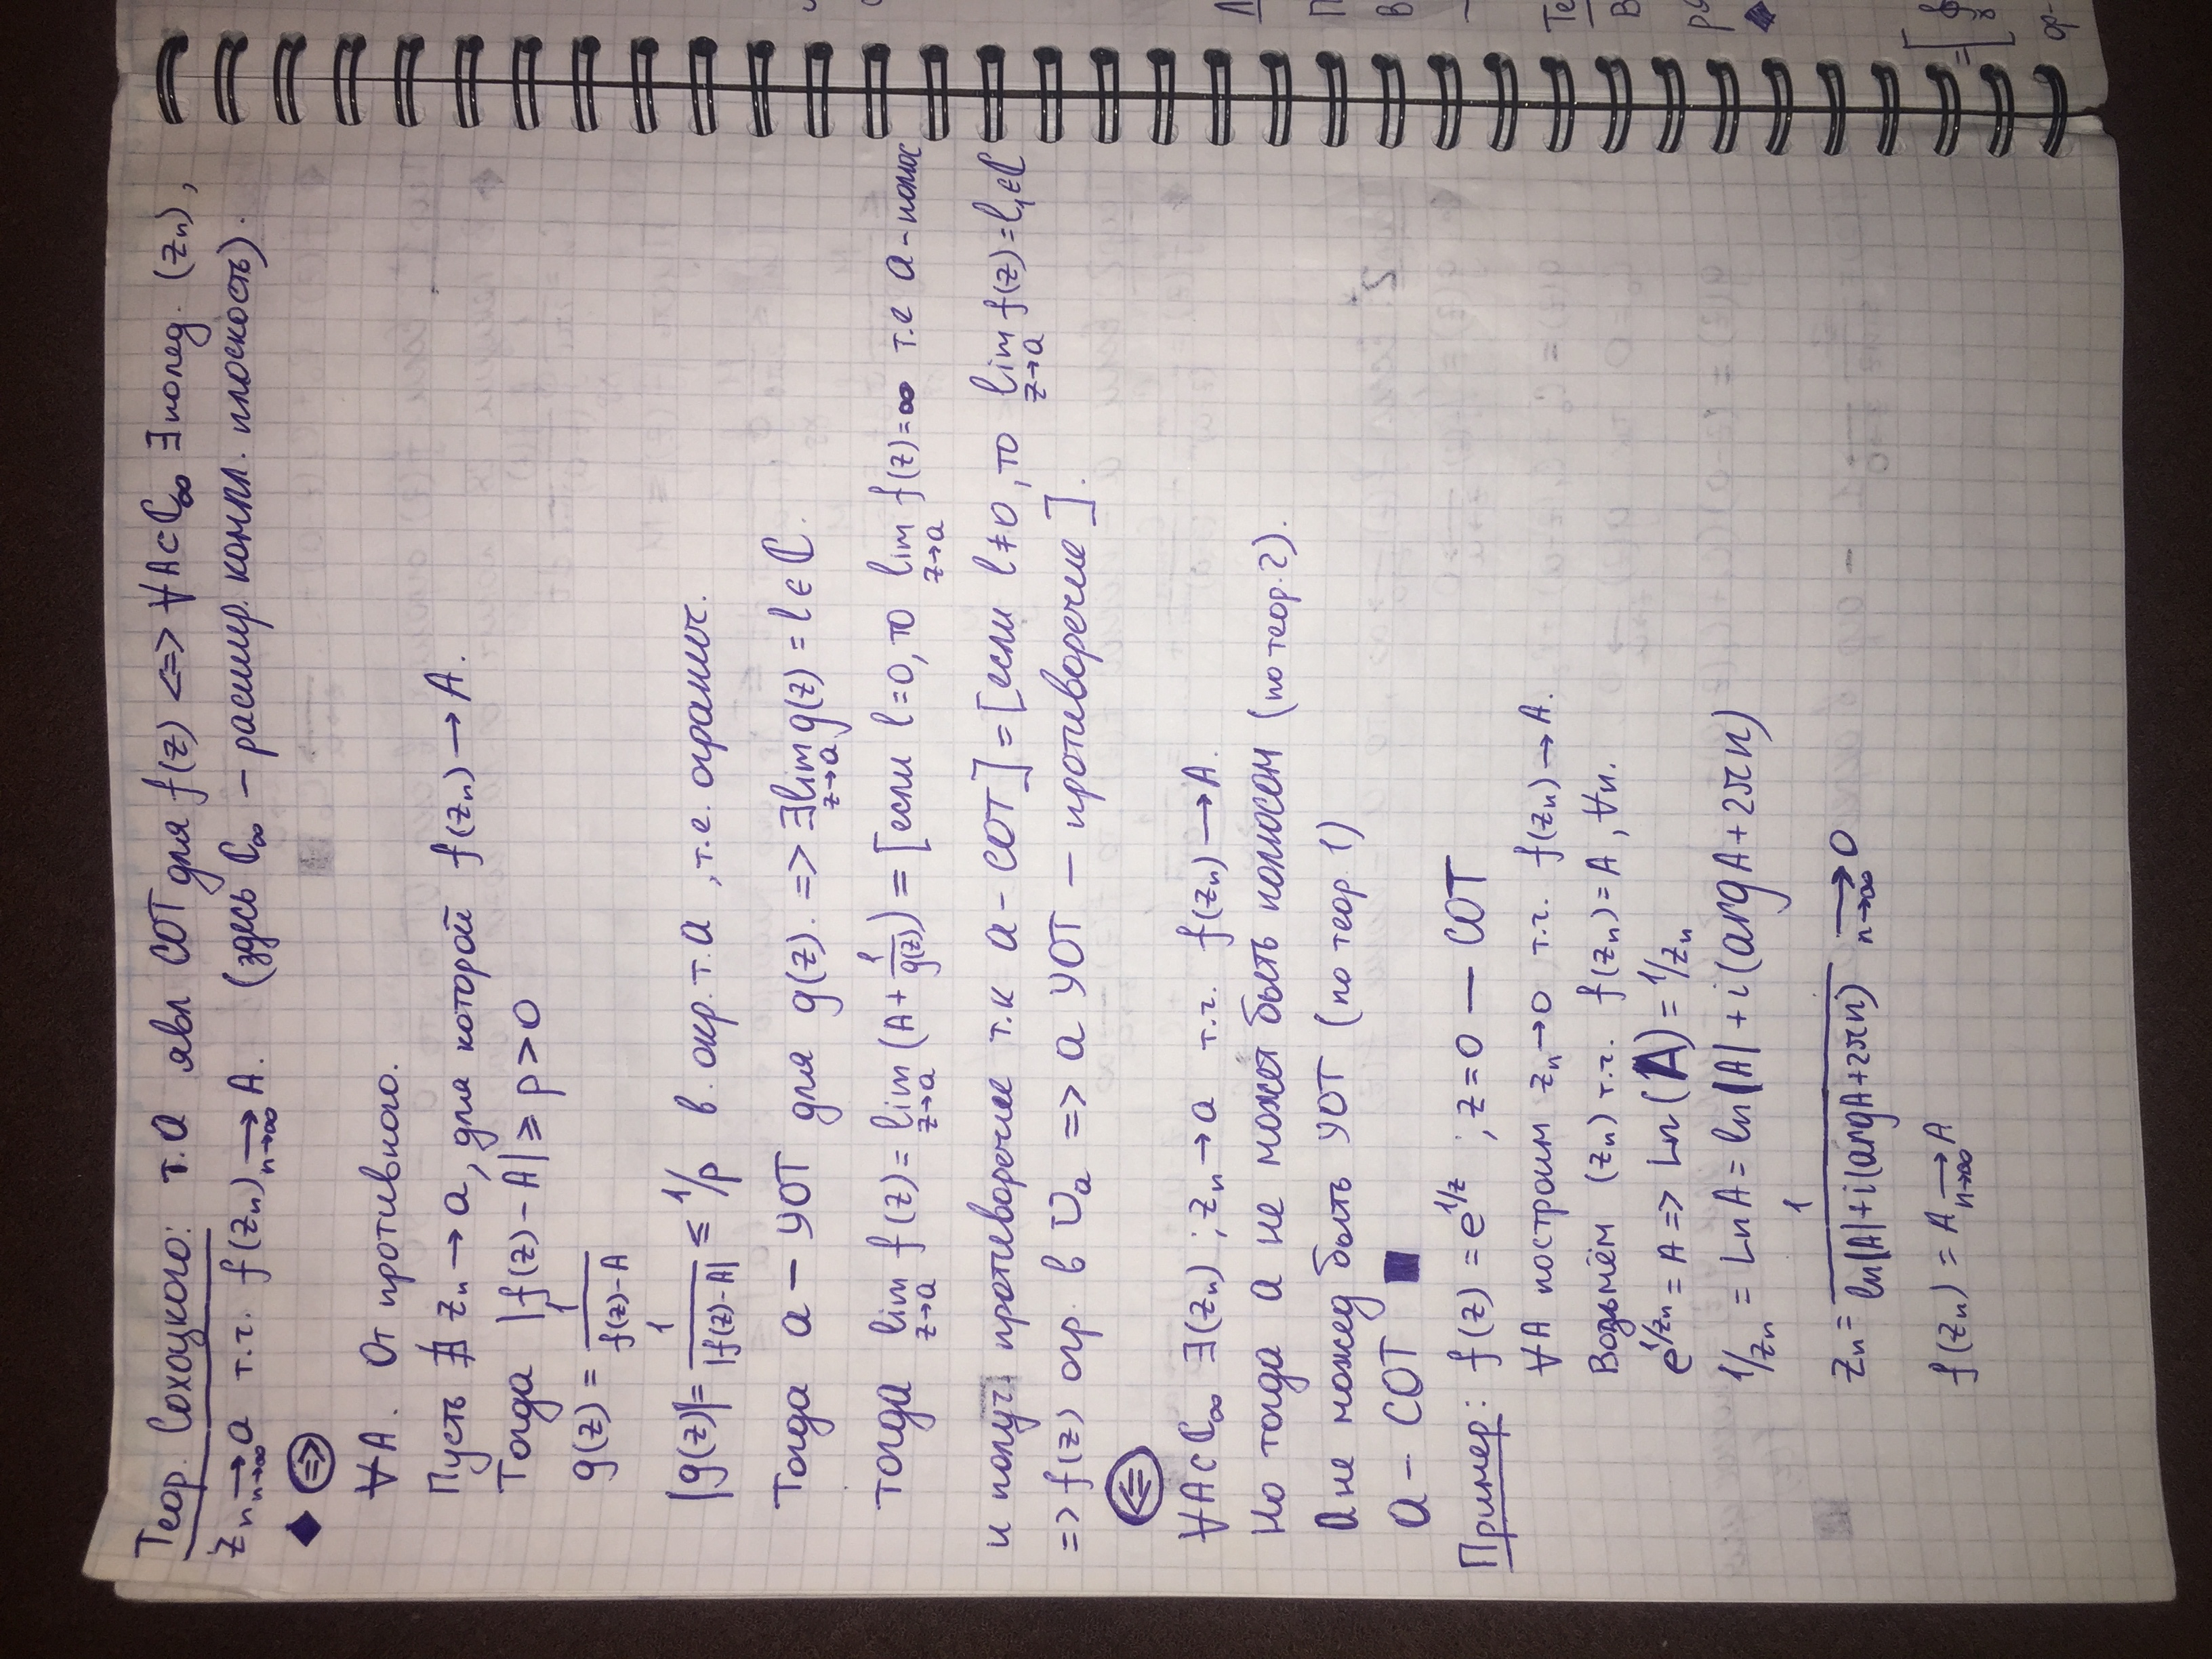 Теор. Сохоцкого: т.а явл СОТ для f(z) <=> ∀A⊂ℂ∞ ∃ полед. (zₙ),
zₙ →(n→∞) a т.ч. f(zₙ) →(n→∞) A. (здесь ℂ∞ – расшир. компл. плоскость).
◆ (⇒)
∀A. От противного.
Пусть ∄ zₙ → a, для которой f(zₙ) → A.
Тогда |f(z) - A| ⩾ p > 0
g(z) = 1/(f(z)-A)
|g(z)| = 1/|f(z)-A| ≤ 1/p в. окр. т. а, т.е. огранич.
Тогда а – УОТ для g(z). => ∃ lim(z→a) g(z) = l ∈ ℂ.
тогда lim(z→a) f(z) = lim(z→a) (A + 1/g(z)) = [если l=0, то lim(z→a) f(z)=∞ т.е а - полюс
и получ. противоречие т.к а - СОТ] = [если l≠0, то lim(z→a) f(z)=l₁∈ℂ
=> f(z) огр. в Uₐ => а УОТ – противоречие].
(⇐)
∀A⊂ℂ∞ ∃(zₙ) ; zₙ → a т.ч. f(zₙ) → A.
Но тогда а не может быть полюсом (по теор. 2).
а не можед быть УОТ (по теор. 1)
а – СОТ ■
Пример: f(z) = e^(1/z) ; z=0 — СОТ
∀A построим zₙ→0 т.ч. f(zₙ) → A.
Возьмём (zₙ) т.ч. f(zₙ) = A, ∀n.
e^(1/zₙ) = A => Ln(A) = 1/zₙ
1/zₙ = Ln A = ln|A| + i(argA + 2πn)
zₙ = 1/(ln|A| + i(argA + 2πn)) →(n→∞) 0
f(zₙ) = A →(n→∞) A